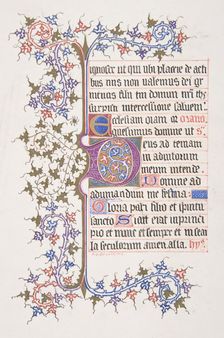 ignoscr ut qui ubi placere de act
bus nris non valemus dei ge
nitricis filii tui domini nri ihu
xpi intercessione saluem
Ecclesiam qram or orano
quesumus domine ut s
Deus ad
in adiutorium
meum intende
Domine ad
adiuuandum me festina
Gloria patri filio et spiritui
sancto Sicut erat in princi
pio et nunc et semper et in secu
la seculorum amen alla. hy